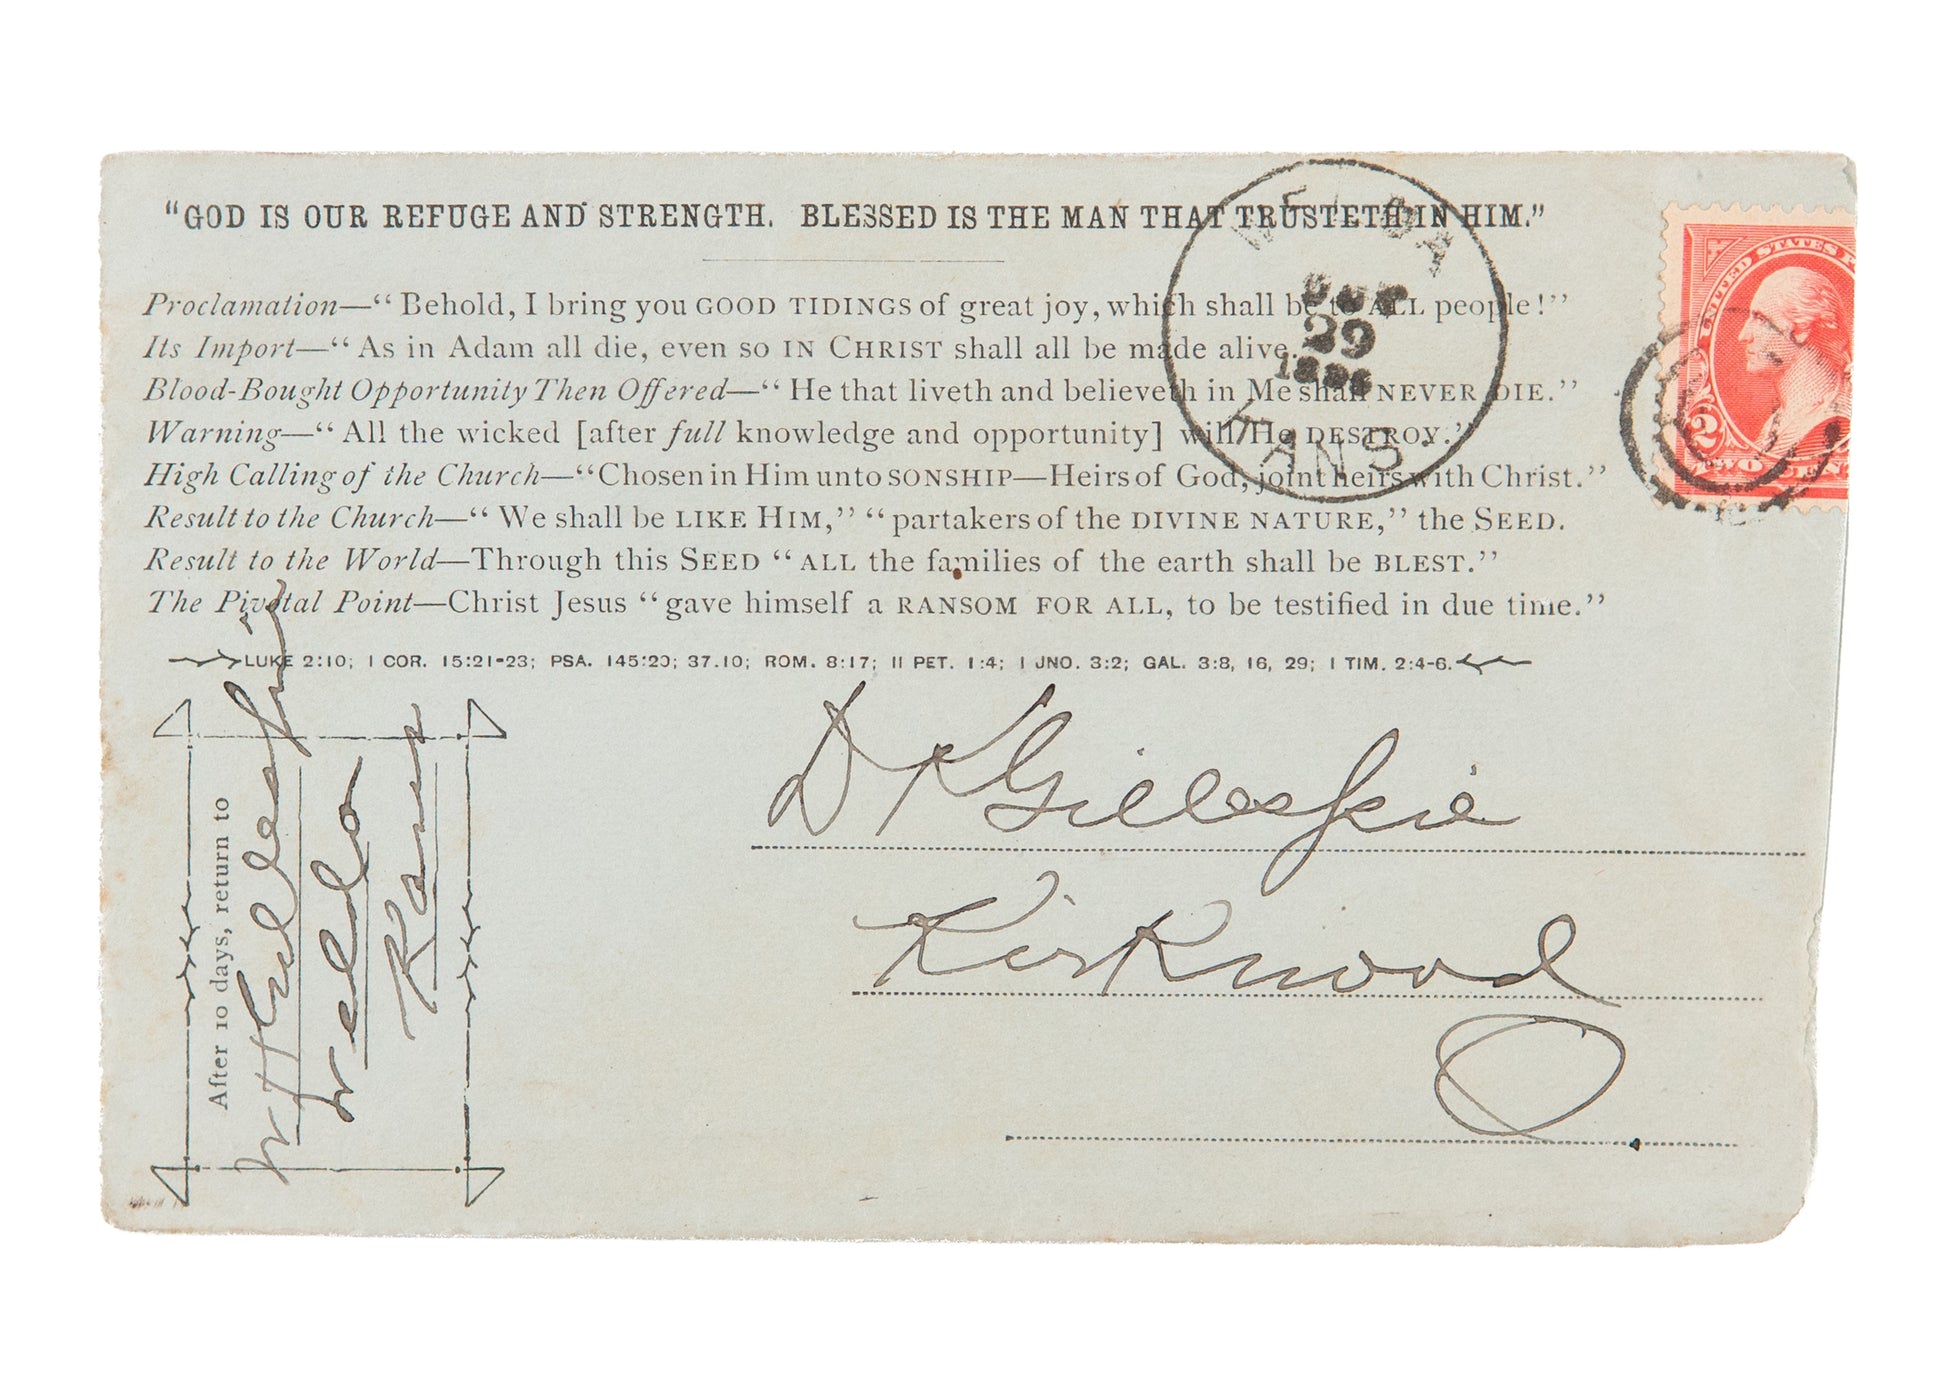 "GOD IS OUR REFUGE AND STRENGTH. BLESSED IS THE MAN THAT TRUSTETH IN HIM."
Proclamation—“Behold, I bring you GOOD TIDINGS of great joy, which shall be to ALL people!”
Its Import—“As in Adam all die, even so IN CHRIST shall all be made alive.
Blood-Bought Opportunity Then Offered—“He that liveth and believeth in Me shall NEVER DIE.”
Warning—“All the wicked [after full knowledge and opportunity] will He DESTROY.”
High Calling of the Church—“Chosen in Him unto SONSHIP—Heirs of God, joint heirs with Christ.”
Result to the Church—“We shall be LIKE HIM,” “partakers of the DIVINE NATURE,” the SEED.
Result to the World—Through this SEED “ALL the families of the earth shall be BLEST.”
The Pivotal Point—Christ Jesus “gave himself a RANSOM FOR ALL, to be testified in due time.”
LUKE 2:10; I COR. 15:21-23; PSA. 145:20; 37.10; ROM. 8:17; II PET. 1:4; I JNO. 3:2; GAL. 3:8, 16, 29; I TIM. 2:4-6.
29
KANS.
UNITED STATES
2
TWO
After 10 days, return to
Welda
Kans
D K Gillespie
Kirkwood
O.